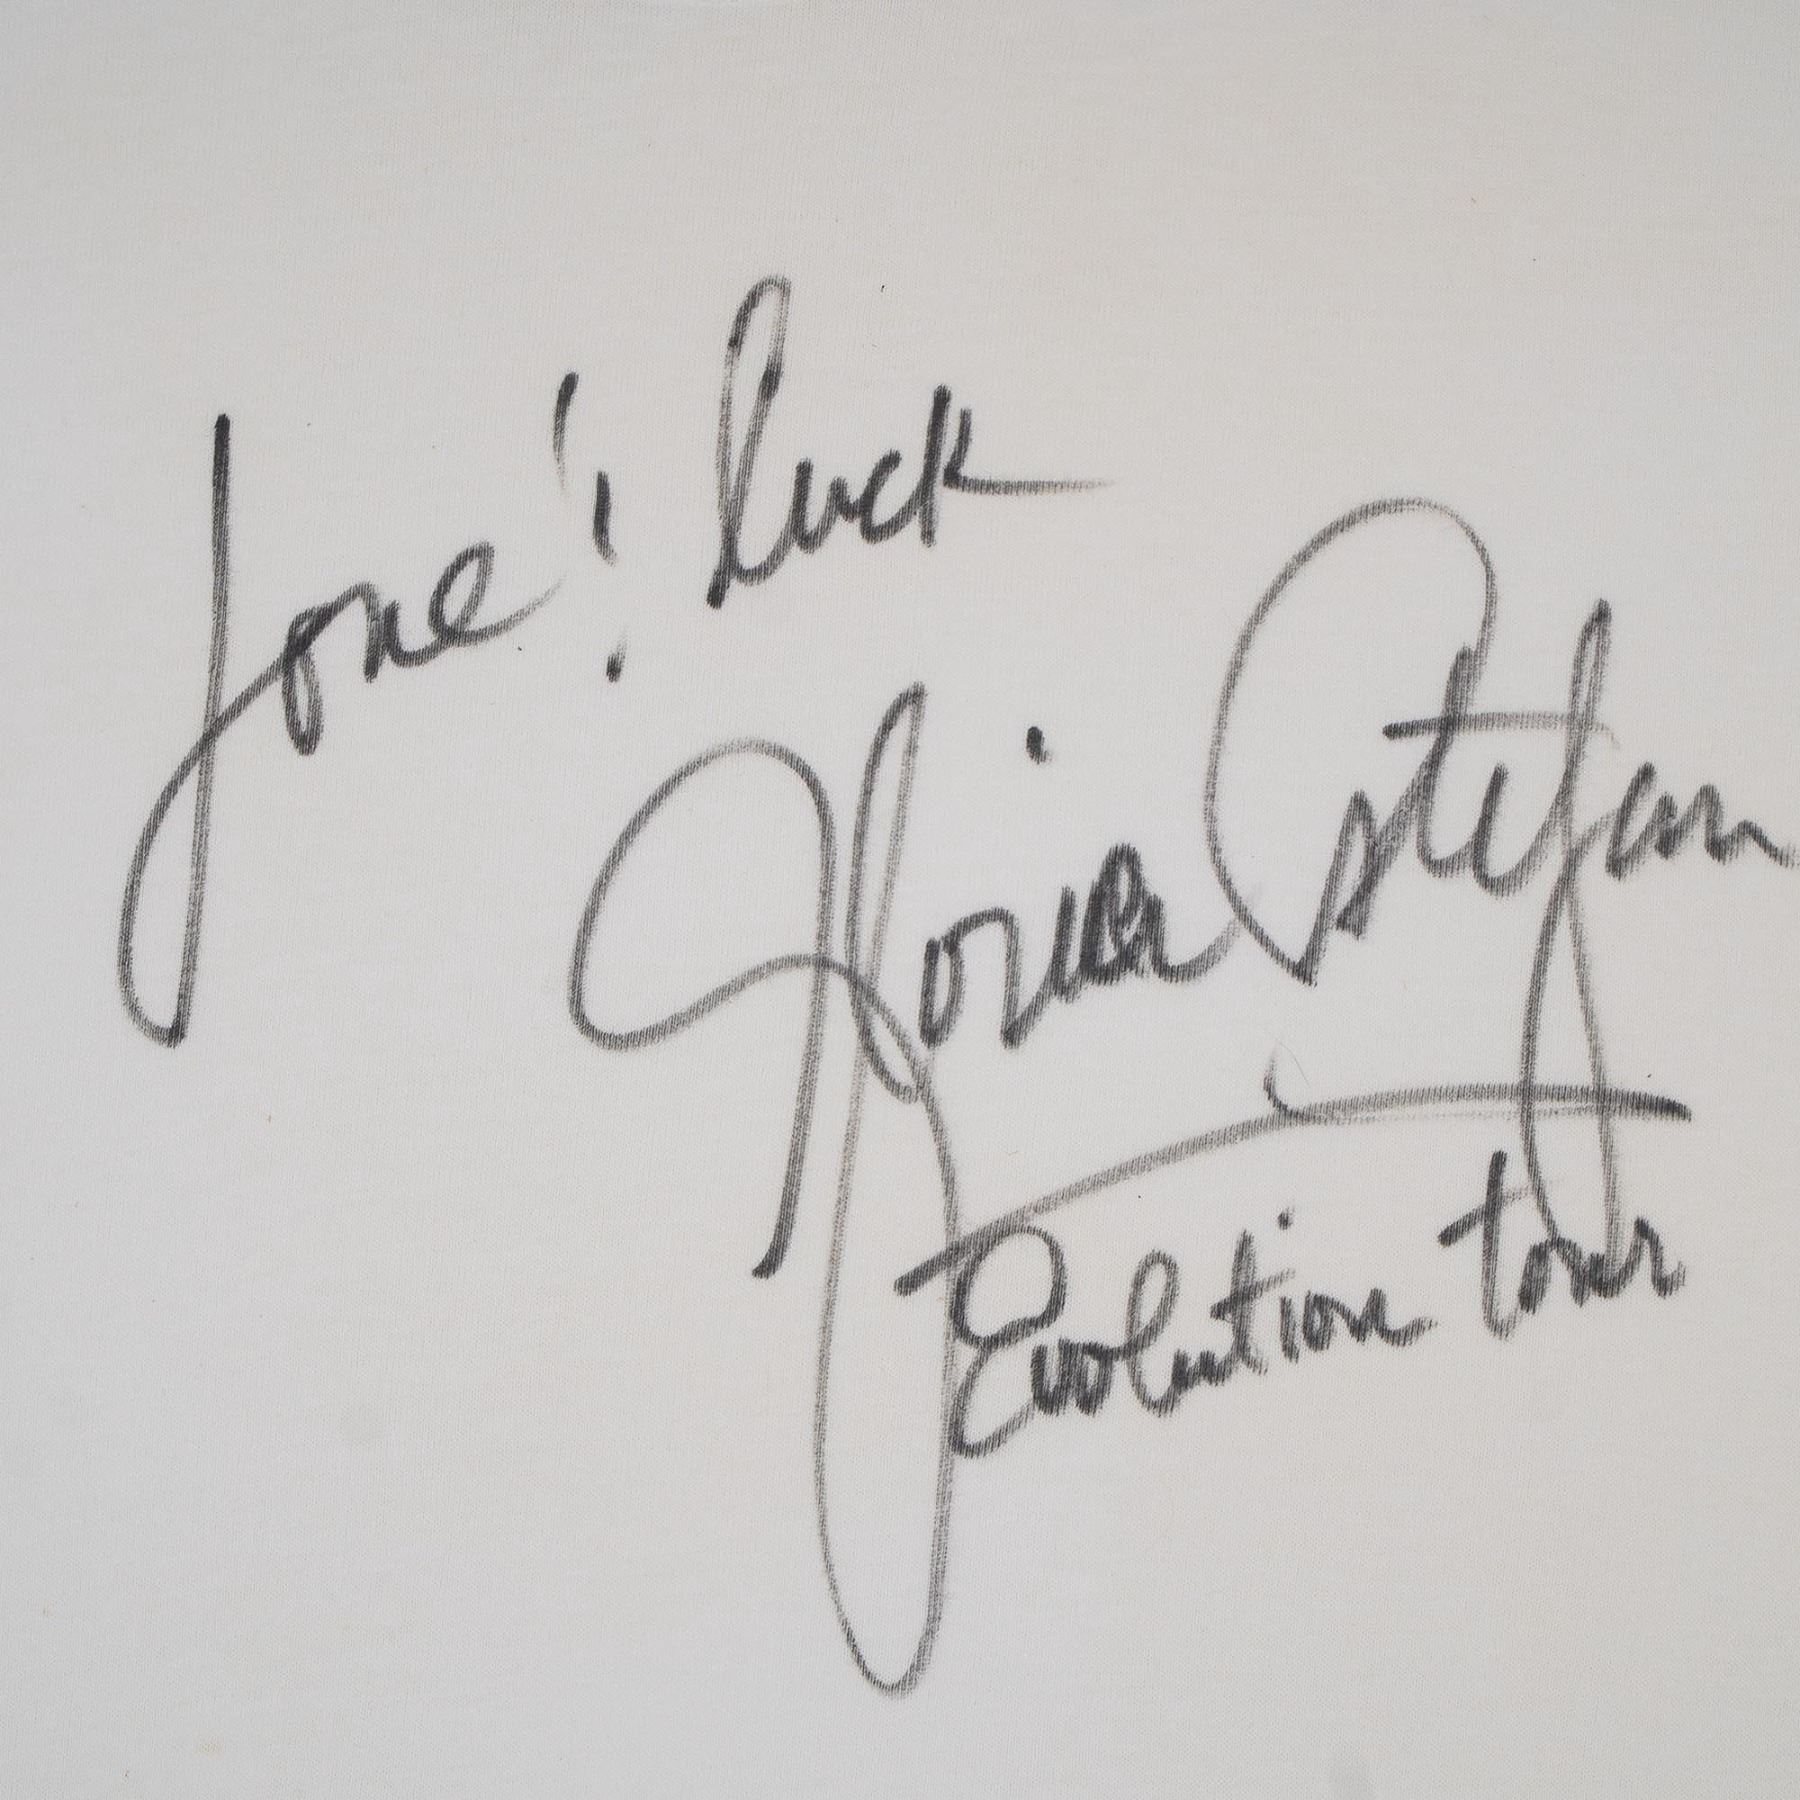 Love! luck
Gloria Estefan
Evolution tour